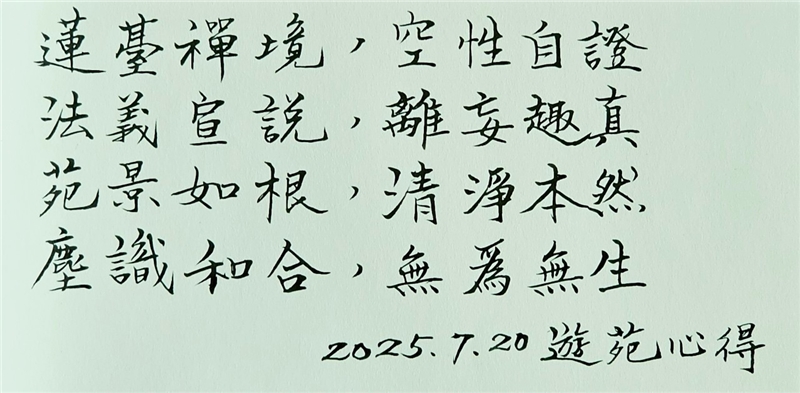 蓮臺禪境，空性自證
法義宣説，離妄趣真
苑景如根，清淨本然
塵識和合，無為無生
2025.7.20 遊苑心得